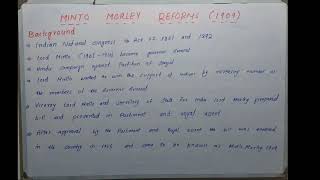 MINTO MORLEY REFORMS (1909)
Background
Indian National congress Act 1861 and 1892
Lord Minto (1905-1910) become governor General
Hindu campaign against Partition of Bengal
Lord Minto wanted to win the support of Indian by increasing number of
the members of the General
Viceroy Lord Minto and secretary of State for India Lord Morley prepared
bill and presented in Parliament and royal assent
After approval by the Parliament and Royal assent the bill was enforced
in the country in 1909 and came to be known as Minto Morley